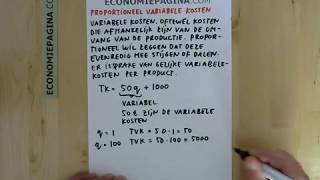 ECONOMIEPAGINA.COM
PROPORTIONEEL VARIABELE KOSTEN
VARIABELE KOSTEN. OFTEWEL KOSTEN
DIE AFHANKELIJK ZIJN VAN DE OM-
VANG VAN DE PRODUCTIE. PROPOR-
TIONEEL WIL ZEGGEN DAT DEZE
EVENREDIG MEE STIJGEN OF DALEN.
ER IS SPRAKE VAN GELIJKE VARIABELE-
KOSTEN PER PRODUCT.
TK = 50q + 1000
VARIABEL
50q ZIJN DE VARIABELE
KOSTEN
q = 1 TVK = 50 · 1 = 50
q = 100 TVK = 50 · 100 = 5000